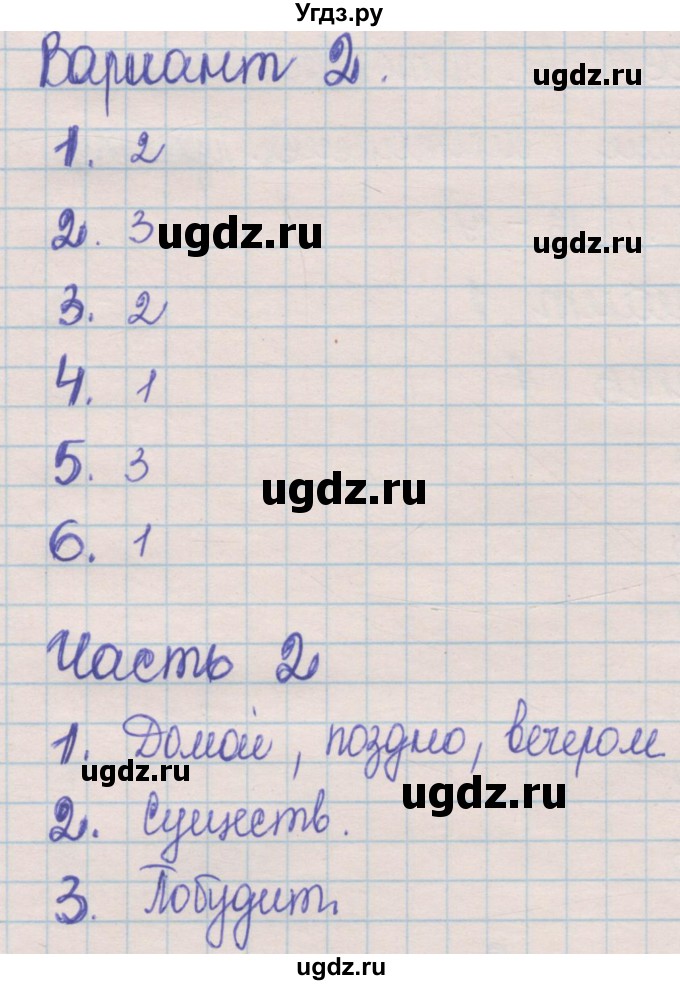 Угдз.ру
Вариант 2.
ugdz.ru
1. 2
2. 3
ugdz.ru
ugdz.ru
3. 2
4. 1
5. 3
ugdz.ru
6. 1
Часть 2
1. Домой, поздно, вечером
ugdz.ru
ugdz.ru
2. Существ.
3. Побудит.
ugdz.ru